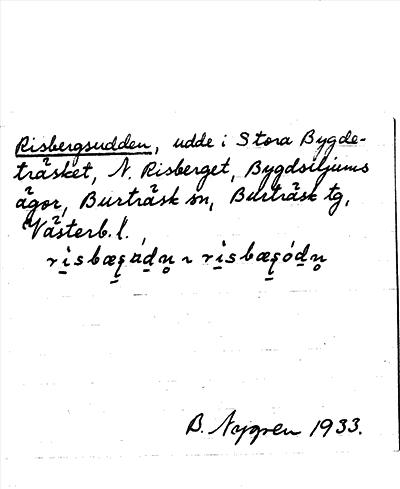 Risbergsudden, udde i Stora Bygde-
träsket, N. Risberget, Bygdsiljums
ägor, Burträsk sn, Burträsk tg,
Västerb. l.
B. Nygren 1933.